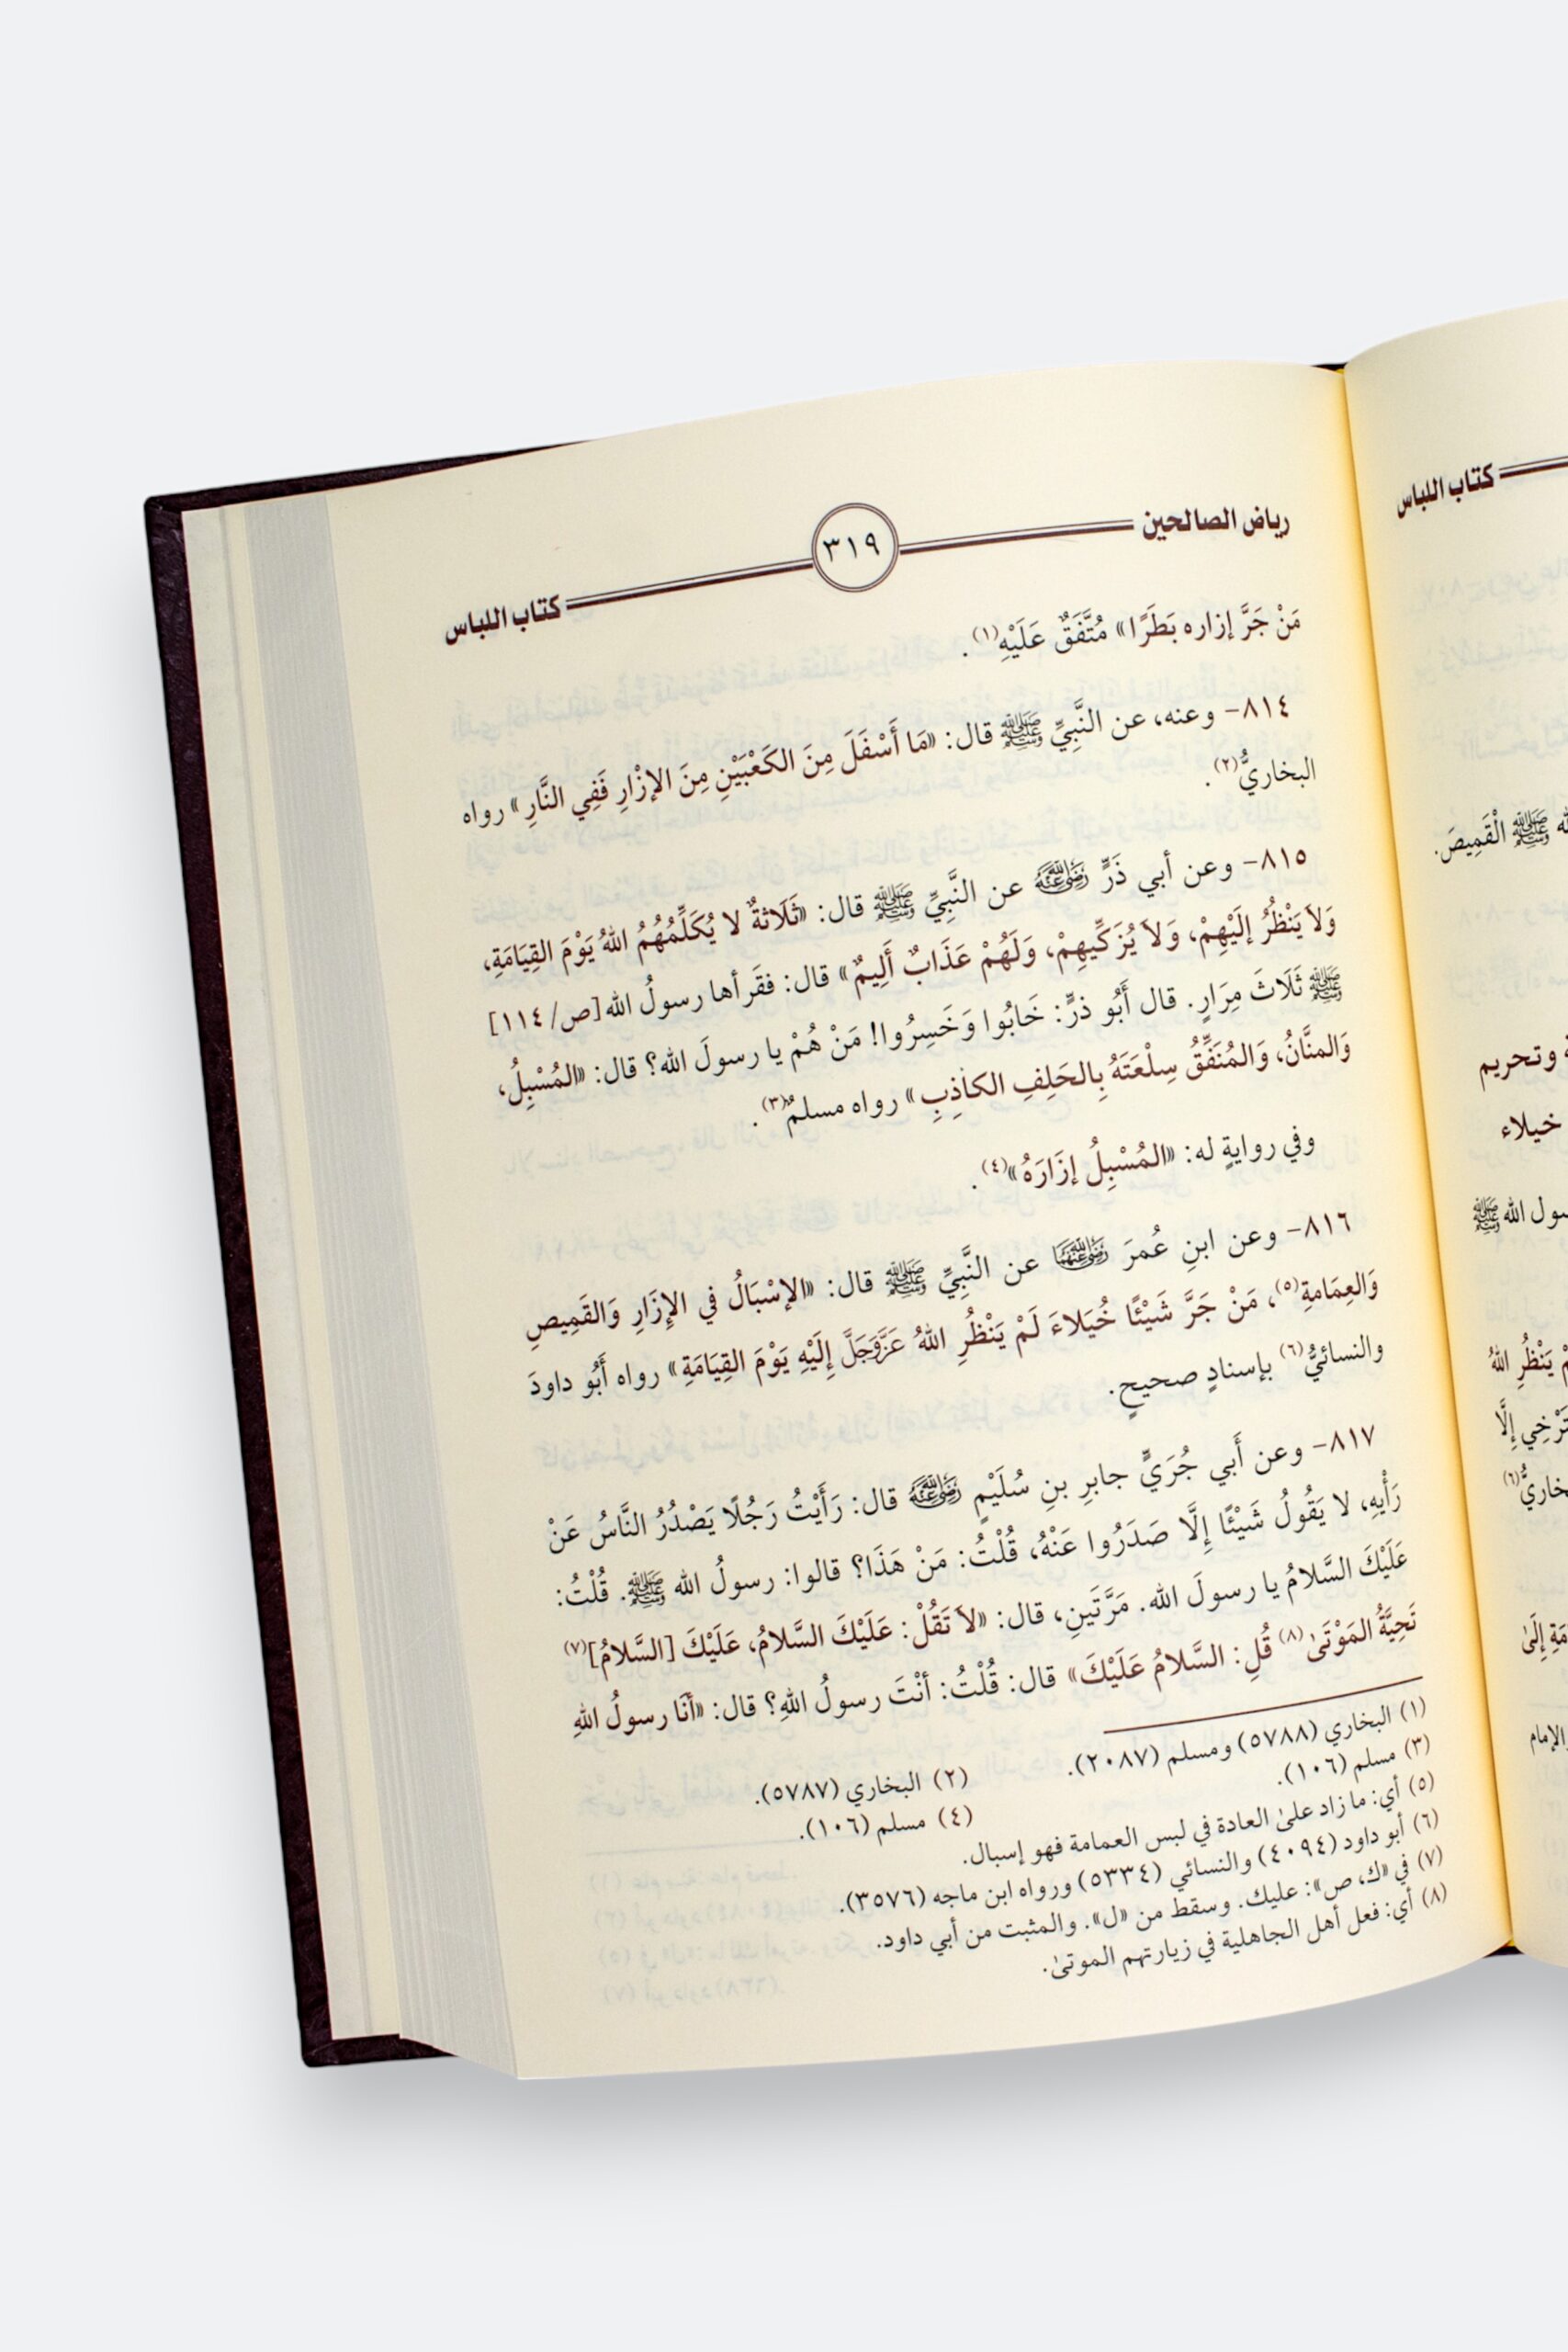 رياض الصالحين ٣١٩ كتاب اللباس
مَنْ جَرَّ إزاره بَطَرًا» مُتَّفَقٌ عَلَيْهِ(١).
٨١٤- وعنه، عن النَّبِيِّ ﷺ قال: «مَا أَسْفَلَ مِنَ الكَعْبَيْنِ مِنَ الإزْارِ فَفِي النَّارِ» رواه
البخاريُّ(٢).
٨١٥- وعن أبي ذَرٍّ رَضِيَ اللَّهُ عَنْهُ عن النَّبِيِّ ﷺ قال: «ثَلَاثةٌ لا يُكَلِّمُهُمُ اللهُ يَوْمَ القِيَامَةِ،
وَلاَ يَنْظُرُ إلَيْهِمْ، وَلاَ يُزَكِّيهِمْ، وَلَهُمْ عَذَابٌ أَلِيمٌ» قال: فقَرأها رسولُ الله [ص/١١٤]
ﷺ ثَلَاثَ مِرَارٍ. قال أَبُو ذرٍّ: خَابُوا وَخَسِرُوا! مَنْ هُمْ يا رسولَ الله؟ قال: «المُسْبِلُ،
وَالمنَّانُ، وَالمُنَفِّقُ سِلْعَتَهُ بِالحَلِفِ الكاذِبِ» رواه مسلمٌ(٣).
وفي روايةٍ له: «المُسْبِلُ إزَارَهُ»(٤).
٨١٦- وعن ابنِ عُمرَ رَضِيَ اللَّهُ عَنْهُمَا عن النَّبِيِّ ﷺ قال: «الإسْبَالُ في الإزَارِ وَالقَمِيصِ
وَالعِمَامةِ(٥)، مَنْ جَرَّ شَيْئًا خُيَلاءَ لَمْ يَنْظُرِ اللهُ عَزَّوَجَلَّ إلَيْهِ يَوْمَ القِيَامَةِ» رواه أَبُو داودَ
والنسائيُّ(٦) بإسنادٍ صحيحٍ.
٨١٧- وعن أَبي جُرَيٍّ جابرِ بنِ سُلَيْمٍ رَضِيَ اللَّهُ عَنْهُ قال: رَأَيْتُ رَجُلًا يَصْدُرُ النَّاسُ عَنْ
رَأْيهِ، لا يَقُولُ شَيْئًا إِلَّا صَدَرُوا عَنْهُ، قُلْتُ: مَنْ هَذَا؟ قالوا: رسولُ الله ﷺ. قُلْتُ:
عَلَيْكَ السَّلامُ يا رسولَ الله. مَرَّتَينِ، قال: «لاَ تَقُلْ: عَلَيْكَ السَّلامُ، عَلَيْكَ [السَّلامُ](٧)
تَحِيَّةُ المَوْتَىٰ(٨) قُلِ: السَّلامُ عَلَيْكَ» قال: قُلْتُ: أنْتَ رسولُ اللهِ؟ قال: «أَنَا رسولُ اللهِ
(١) البخاري (٥٧٨٨) ومسلم (٢٠٨٧). (٢) البخاري (٥٧٨٧).
(٣) مسلم (١٠٦). (٤) مسلم (١٠٦).
(٥) أي: ما زاد علىٰ العادة في لبس العمامة فهو إسبال.
(٦) أبو داود (٤٠٩٤) والنسائي (٥٣٣٤) ورواه ابن ماجه (٣٥٧٦).
(٧) في «ك، ص»: عليك. وسقط من «ل». والمثبت من أبي داود.
(٨) أي: فعل أهل الجاهلية في زيارتهم الموتىٰ.
كتاب اللباس
ﷺ الْقَمِيصَ.
وتحريم
خيلاء
ﷺ الله
يَنْظُرِ اللهُ
إِلَّا
(٦)
إلَىٰ
الإمام